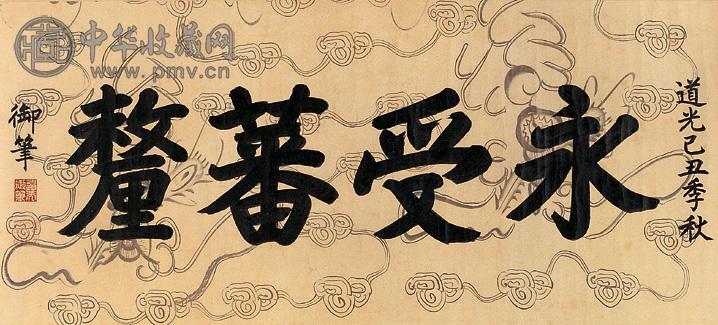 道光己丑季秋
永受蕃釐
御筆
中华收藏网
www.pmv.cn